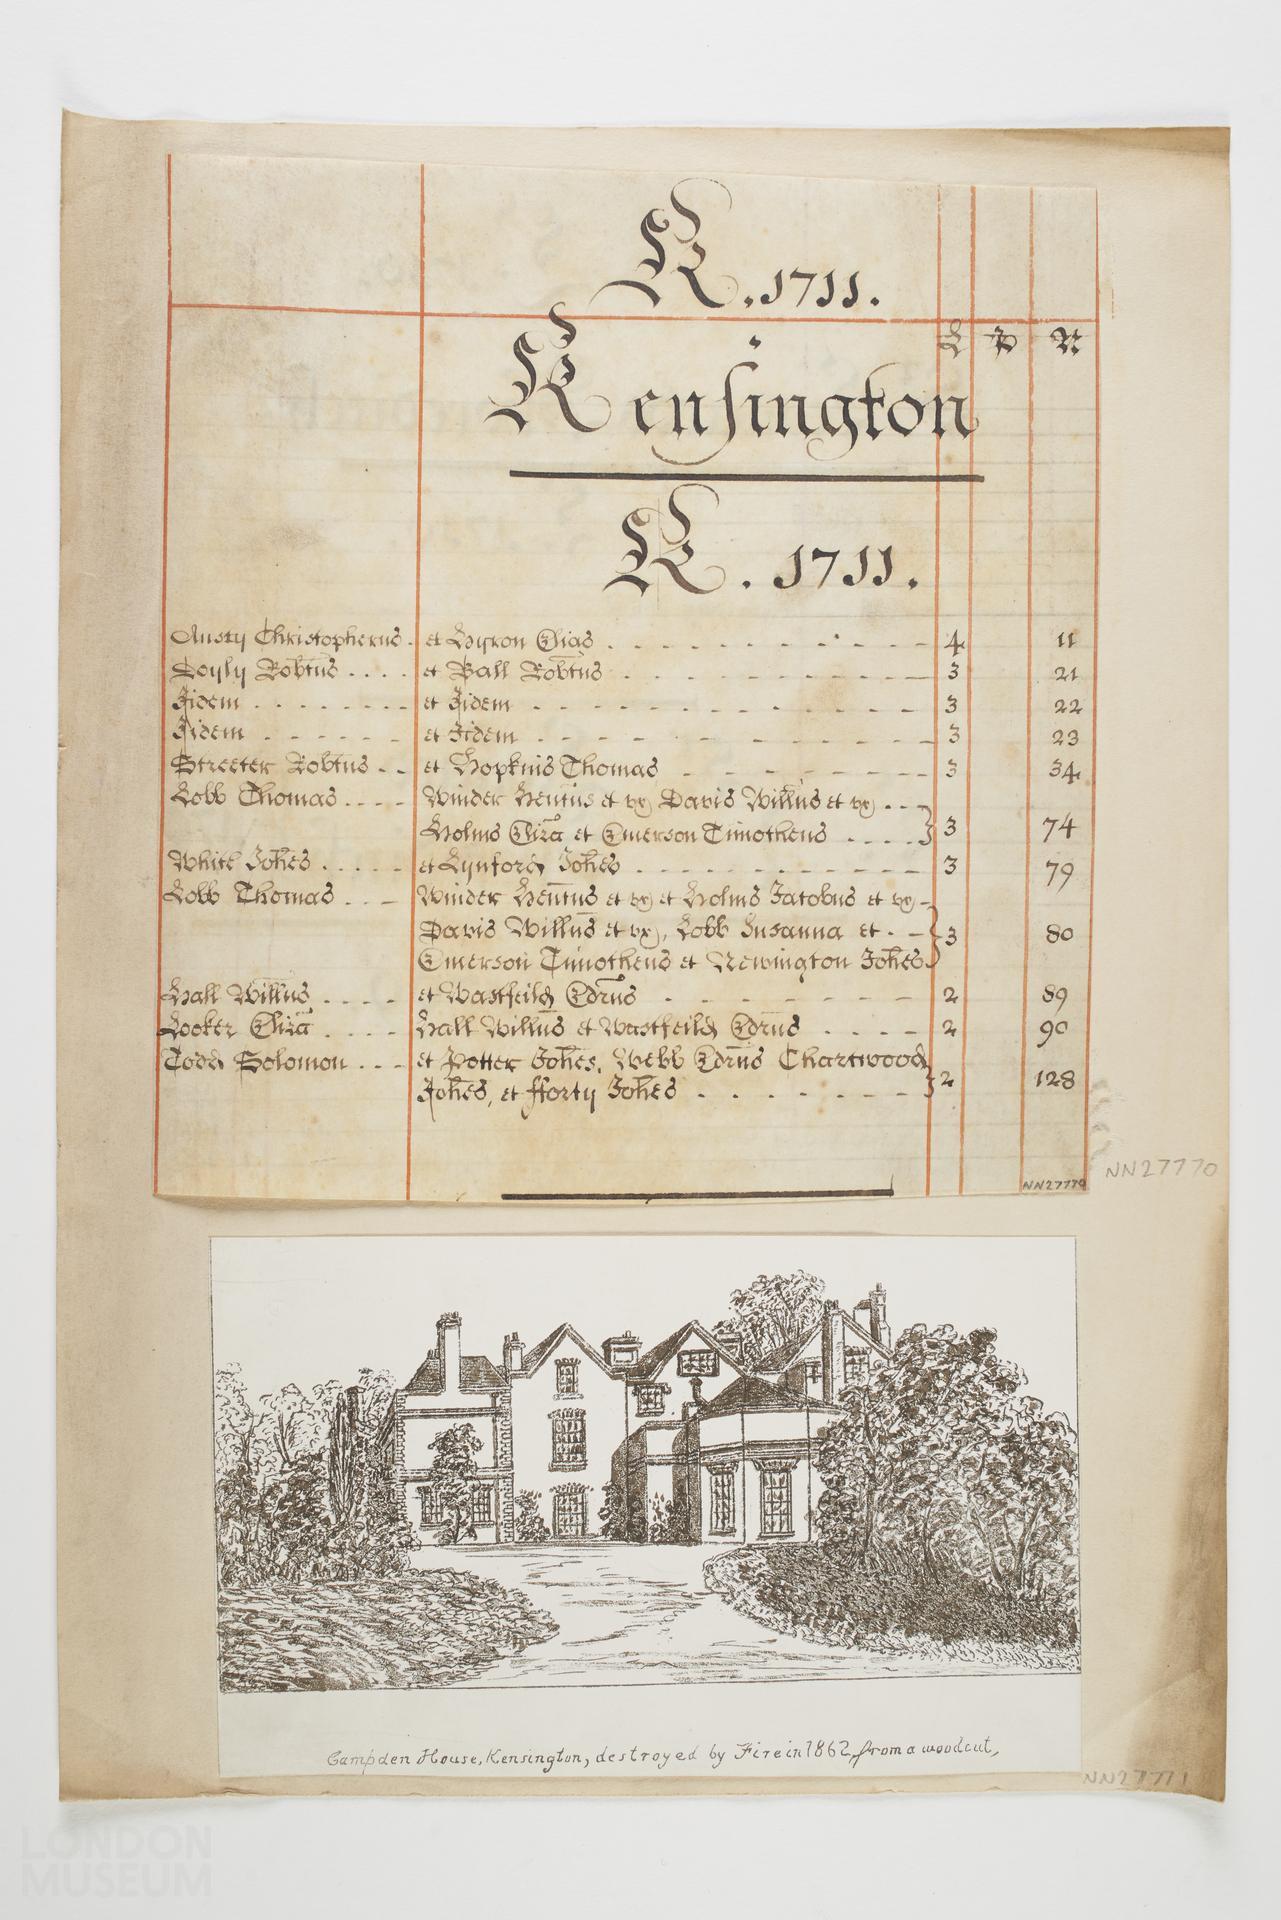 K. 1711.
L P N
Kensington
K. 1711.
Austy Christopherus . et Hyron Elias . . . . . . . . . 4 11
Doyly Robtus . . . . et Ball Robtus . . . . . . . . . 3 21
Iidem . . . . . . . . et Iidem . . . . . . . . . . . . 3 22
Iidem . . . . . . et Iidem . . . . . . . . . . . . 3 23
Streeter Robtus . . et Hopkins Thomas . . . . . . . . . 3 34
Lobb Thomas . . . . Winder Henricus et ux Davis Willus et ux . . .
Holms Eliza et Emerson Timotheus . . . . } 3 74
White Johes . . . . . et Lynford Johes . . . . . . . . . . . . 3 79
Lobb Thomas . . . Winder Henricus et ux et Holms Jacobus et ux
Davis Willus et ux, Lobb Susanna et . } 3 80
Emerson Timotheus et Newington Johes
Hall Willus . . . . et Wastfeild Edrus . . . . . . . . . 2 89
Looker Eliza . . . . Hall Willus et Wastfeild Edrus . . . . 2 90
Todd Solomon . . . et Potter Johes, Webb Edrus Chartwood
Johes, et fforty Johes . . . . . . . } 2 128
NN27770
NN27770
Campden House, Kensington, destroyed by Fire in 1862, from a woodcut,
NN27771
LONDON
MUSEUM